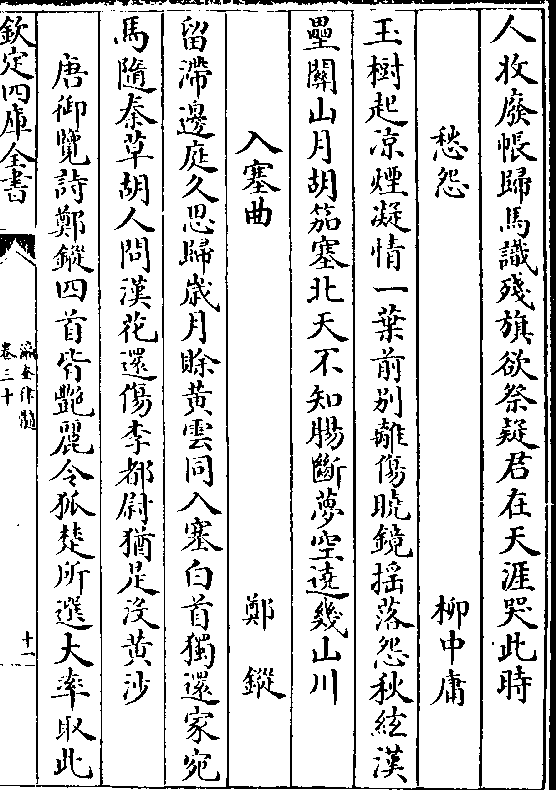 人收廢帳歸馬識殘旗欲祭疑君在天涯哭此時
愁怨　柳中庸
玉樹起凉煙凝情一葉前别離傷曉鏡揺落怨秋絃漢
壘關山月胡笳塞北天不知腸斷夢空遶幾山川
入塞曲　鄭鏦
留滯邊庭久思歸歳月賒黄雲同入塞白首獨還家宛
馬隨秦草胡人問漢花還傷李都尉猶是没黄沙
唐御覽詩鄭鏦四首皆艶麗令狐楚所選大率取此
欽定四庫全書
瀛奎律髓
卷三十
十一